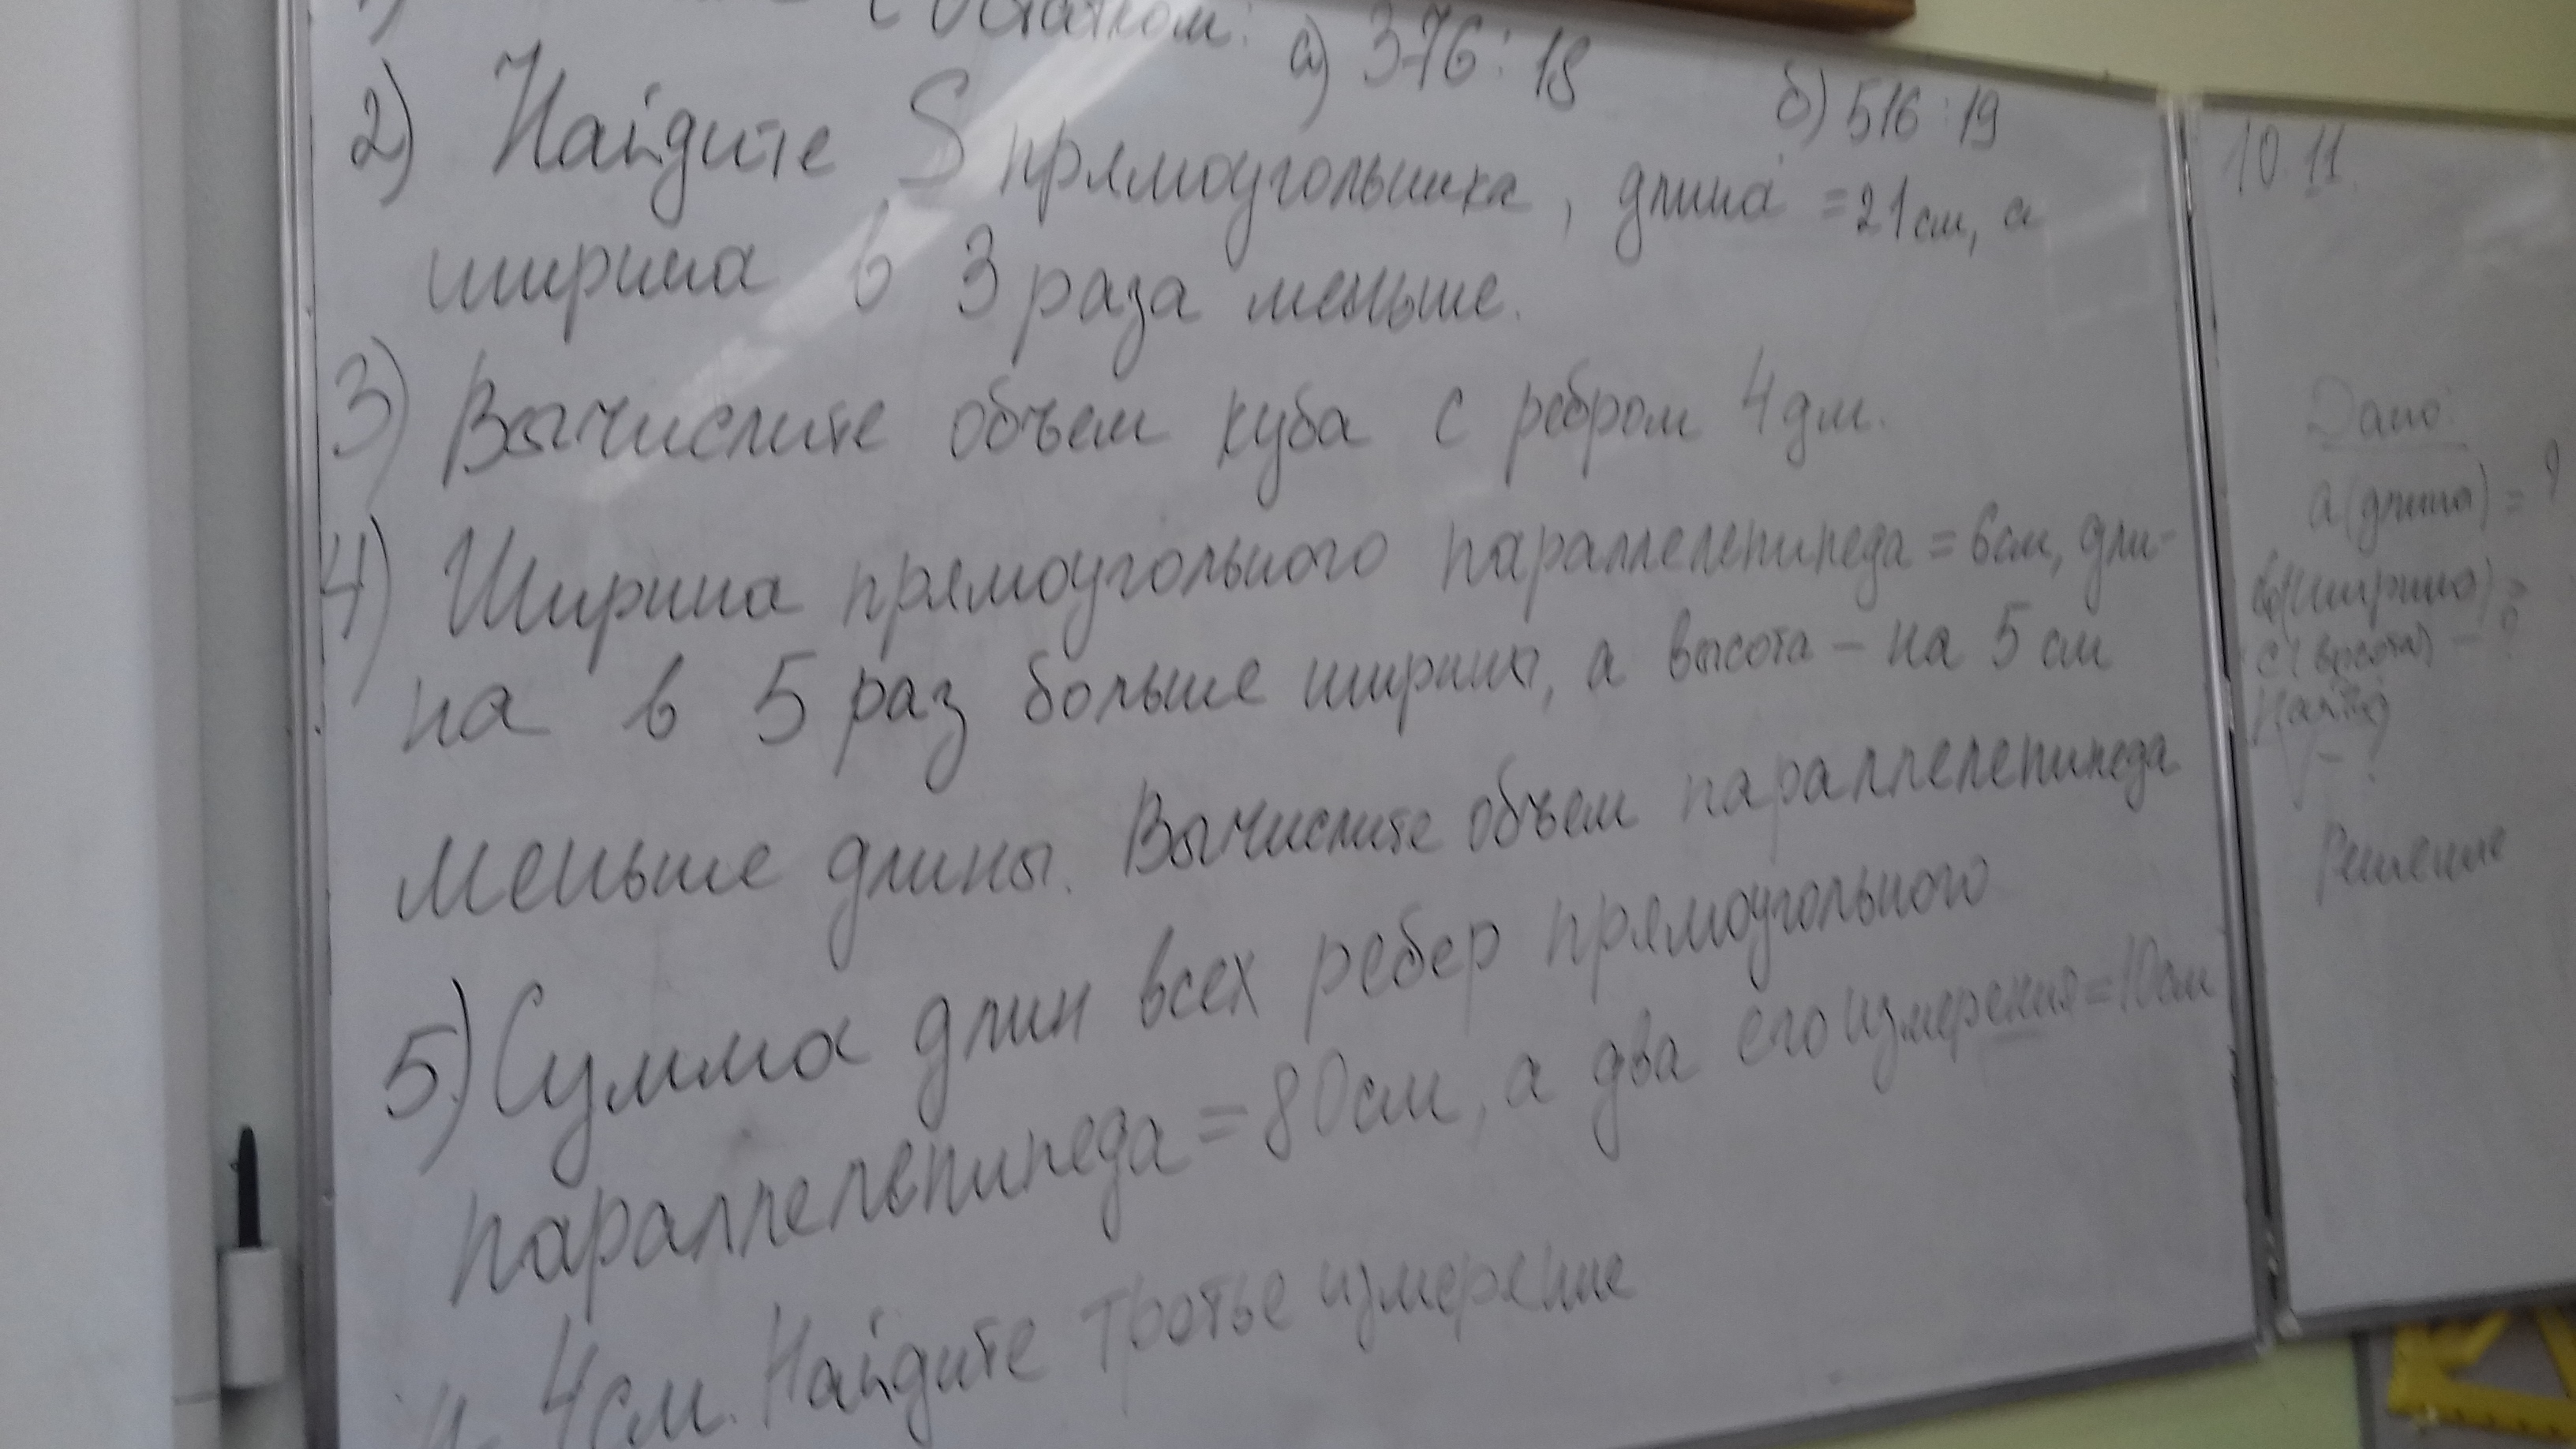 с остатком: а) 376 : 18 б) 516 : 19
2) Найдите S прямоугольника, длина = 21 см, а
ширина в 3 раза меньше.
3) Вычислите объем куба с ребром 4 дм.
4) Ширина прямоугольного параллелепипеда = 6 см, дли-
на в 5 раз больше ширины, а высота – на 5 см
меньше длины. Вычислите объем параллелепипеда
5) Сумма длин всех ребер прямоугольного
параллелепипеда = 80 см, а два его измерения = 10 см
и 4 см. Найдите третье измерение
10.11.
Дано:
a (длина) = ?
(ширина) = ?
c (высота) – ?
Найти
V – ?
Решение